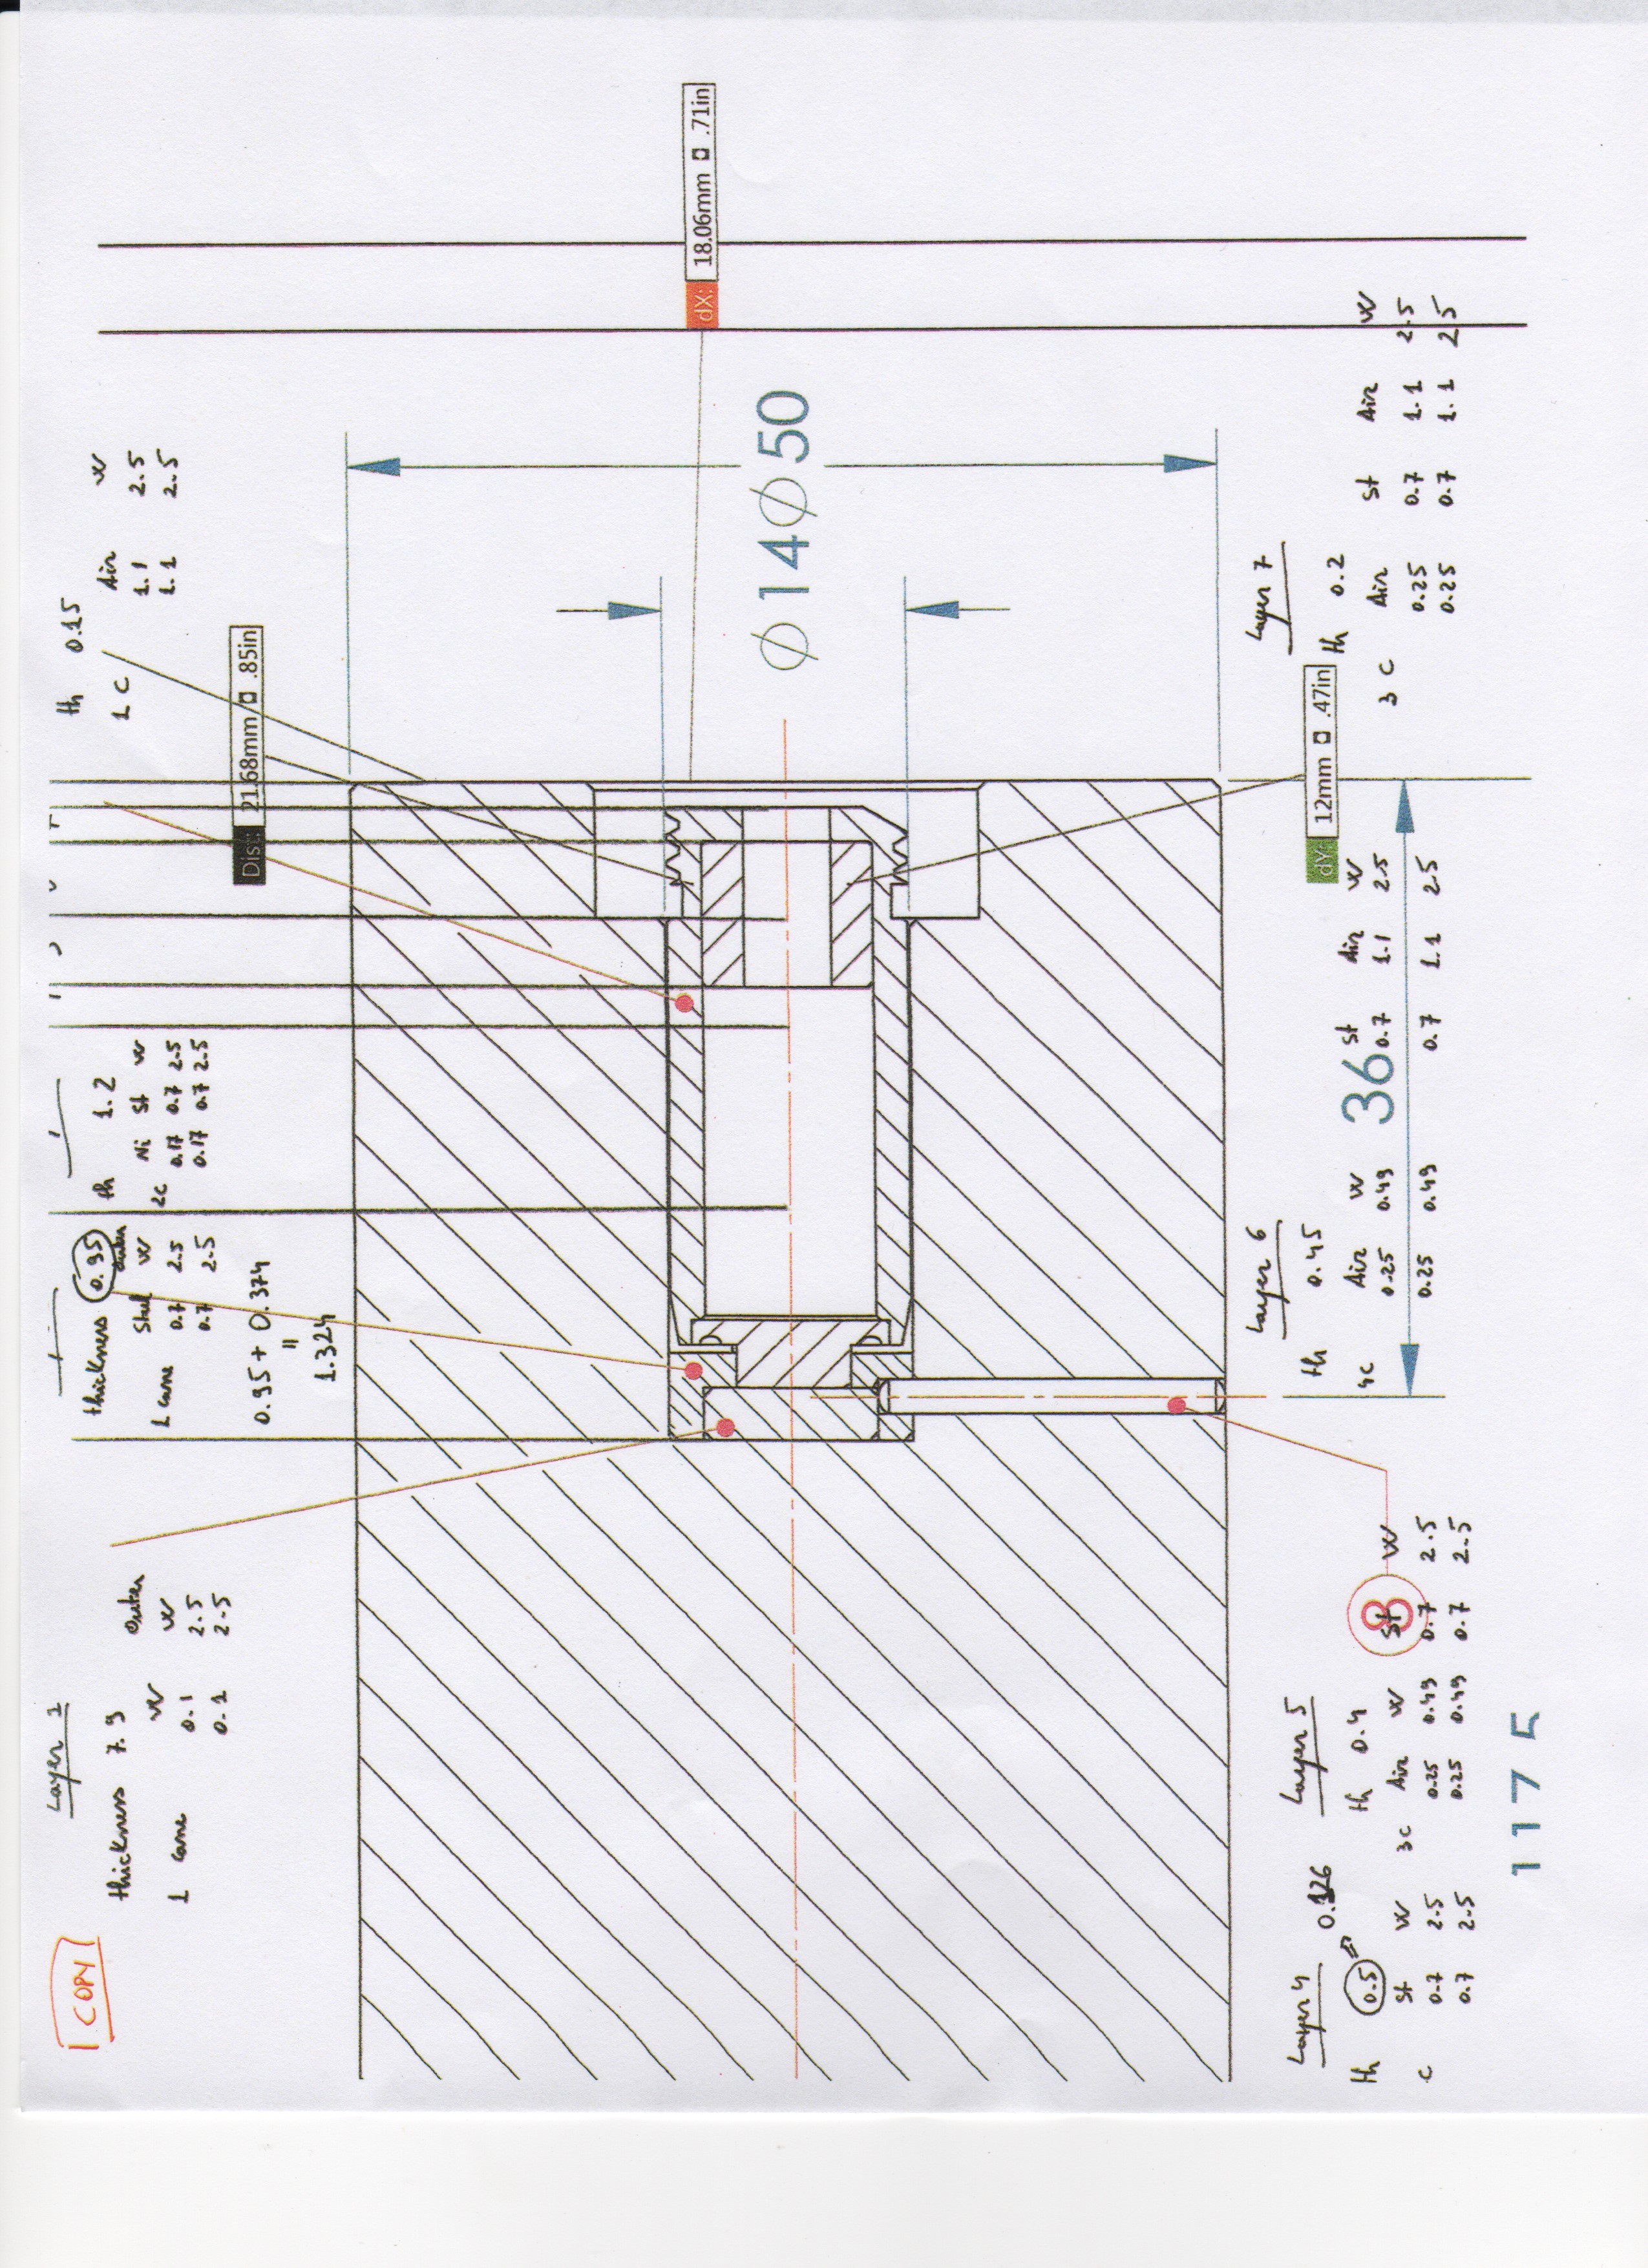 COPY
Layer 1
thickness 7.9
outer
1 cone W W
0.1 2.5
0.1 2.5
thickness 0.95
outer
1 cone Steel W
0.7 2.5
0.7 2.5
0.95 + 0.374
=
1.324
th 1.2
2c Ni St W
0.17 0.7 2.5
0.17 0.7 2.5
th 0.15
1 C Air W
1.1 2.5
1.1 2.5
Dist: 21.68mm .85in
dX: 18.06mm .71in
Ø14
Ø50
dY: 12mm .47in
36
8
117 5
Layer 4
th 0.5 ⇒ 0.126
c St W
0.7 2.5
0.7 2.5
Layer 5
th 0.4
3c Air W St W
0.25 0.49 0.7 2.5
0.25 0.49 0.7 2.5
Layer 6
th 0.45
4c Air W St Air W
0.25 0.49 0.7 1.1 2.5
0.25 0.49 0.7 1.1 2.5
Layer 7
th 0.2
3 C Air St Air W
0.25 0.7 1.1 2.5
0.25 0.7 1.1 2.5